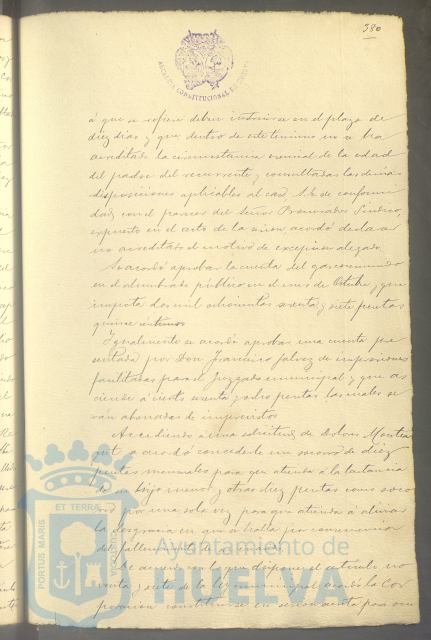 380
ALCALDIA CONSTITUCIONAL DE HUELVA
á que se refiere deben instruirse en el plazo de
diez dias y que dentro de este termino no se ha
acreditado la circunstancia esencial de la edad
del padre del recurrente y consultadas las demas
disposiciones aplicables al caso S.E. de conformi
dad con el parecer del Señor Procurador Síndico,
expuesto en el acto de la acordó declarar
no acreditado el motivo de excepcion alegado.
Se acordó aprobar la cuenta del gas consumido
en el alumbrado público en el mes de Octubre, que
importa dos mil ochocientas y siete pesetas
quince céntimos
Igualmente se acordó aprobar una cuenta pre
sentada por Don Francisco Galvez de impresiones
facilitadas para el Juzgado municipal y que as
ciende á ciento y ocho pesetas las cuales se
rán abonadas de imprevistos
Accediendo á una solicitud de Dolores
se acordó concederle un socorro de diez
pesetas mensuales para que atienda á la lactancia
de un hijo menor y otras diez pesetas como soco
rro por una sola vez para que atienda á aliviar
la desgracia en que se halla por consecuencia
del fallecimiento de su marido.
De acuerdo con lo que dispone el artículo no
venta y siete de la ley municipal acordó la Cor
poracion constituirse en secreta para
PORTUS MARIS ET TERRAE CUSTODIA
Ayuntamiento de
HUELVA